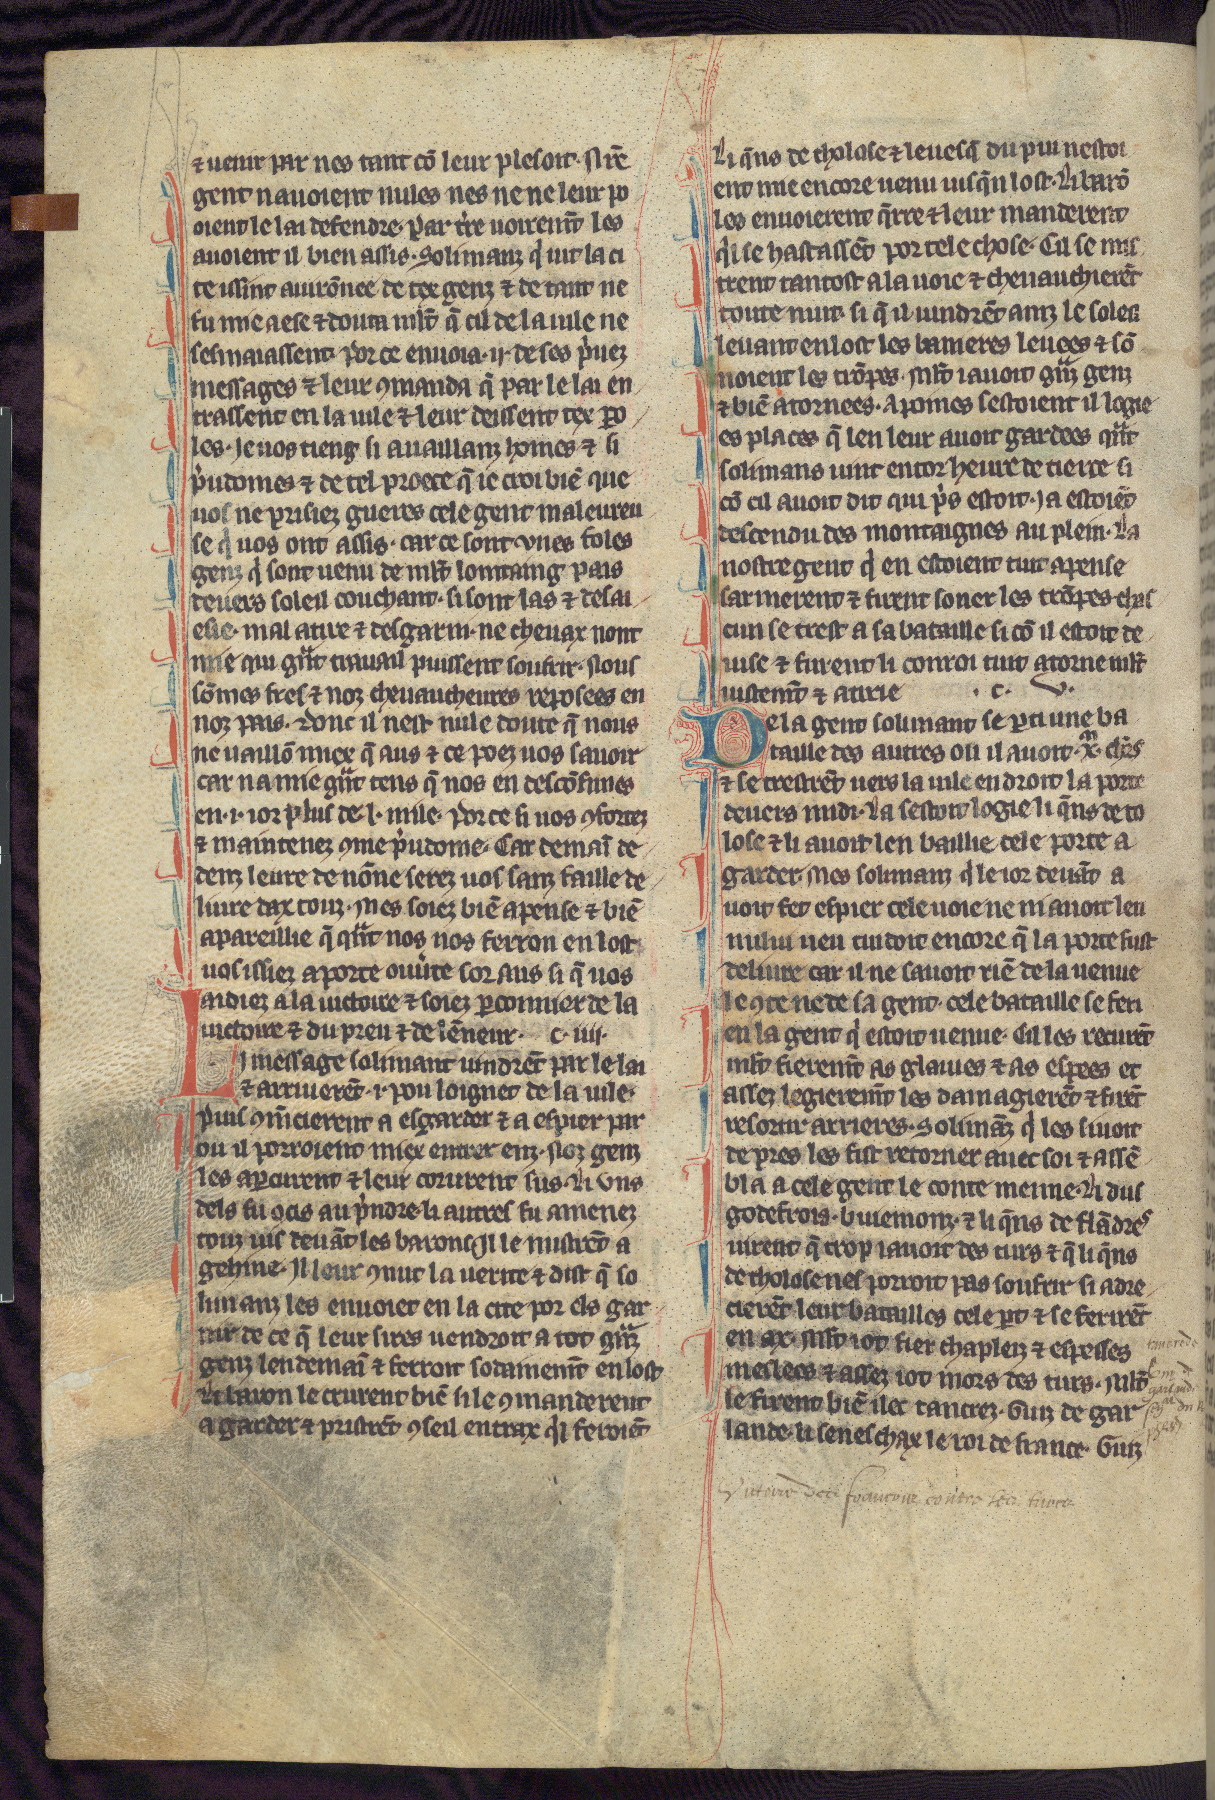 ⁊ uenir par nes tant cō leur plesoit. Nr̄e
gent nauoient nules nes ne ne leur po
oient le lai defendre. Par tr̄e uoirem̄t les
auoient il bien assis. Solimanz q̍ uit la ci
te issint auirōnee de tex genz ⁊ de tant ne
fu mie aese ⁊ douta ml̄t q̄ cil de la uile ne
sesmaiassent. Por ce enuoia .ij. de ses p̍uez
messages ⁊ leur ꝯmanda q̄ par le lai en
trassent en la uile ⁊ leur deissent tex ꝑo
les. Je uos tieng si auaillanz homes ⁊ si
p̍udomes ⁊ de tel proece q̄ ie croi biē que
uos ne prisiez gueres cele gent maleureu
se q̍ uos ont assis. car ce sont unes foles
genz q̍ sont uenu de ml̄t lointaing pais
deuers soleil couchant. si sont las ⁊ delai
esie. mal atire ⁊ desgarni. ne cheuax nont
mie qui gn̄t trauail puissent soufrir. Nous
sōmes fres ⁊ noz cheuaucheures reposees en
noz pais. Donc il nest nule doute q̄ nous
ne uaillō miex q̄ aus ⁊ ce poez uos sauoir
car na mie gn̄t tens q̄ nos en descōfimes
en .i. ior plus de .l. mile. Por ce si uos ꝯfortez
⁊ maintenez ꝯme p̍udome. Car demaī de
denz leure de nōne serez uos sanz faille de
liure dax touz. Mes soiez biē apense ⁊ biē
apareillie q̄ qn̄t nos nos ferron en lost
uos issiez a porte ouūte sor aus si q̄ uos
aidiez a la uictoire ⁊ soiez ꝑconnier de la
uictoire ⁊ du preu ⁊ de lēneur. c. iiij.
Li message solimant uindrēt par le lai
⁊ arriuerēt .i. pou loignet de la uile.
Puis ꝯm̄cierent a esgarder ⁊ a espier par
ou il porroient miex entrer enz. Noz genz
les aꝑcurent ⁊ leur corurent sus. Li vns
dels fu ocis au p̍ndre. li autres fu amenez
touz uis deuāt les barons. Il le mistrēt a
gehine. Il leur ꝯnut la uerite ⁊ dist q̄ so
limanz les enuoiet en la cite por els gar
nir de ce q̄ leur sires uendroit a tot gn̄z
genz lendemaī ⁊ ferroit sodainem̄t en lost
Li baron le crurent biē si le ꝯmanderent
a garder ⁊ pristrēt ꝯseil entrax q̍l feroiēt
Li q̄ns de tholose ⁊ leuesq̄ du pui nestoi
ent mie encore uenu iusq̄n lost. Li barō
les enuoierent q̄rre ⁊ leur manderent
q̍l se hastassēt por tele chose. Cil se mis
trent tantost a la uoie ⁊ cheuauchierēt
toute nuit. si q̄ il uindrēt ainz le soleil
leuant en lost les banieres leuees ⁊ sō
noient les trōpes. Ml̄t i auoit gn̄z genz
⁊ biē atornees. A poines sestoient il logie
es places q̄ len leur auoit gardees qn̄t
solimans uint entor heure de tierce si
cō cil auoit dit qui p̍s estoit. Ja estoiēt
descendu des montaignes au plein. La
nostre gent q̍ en estoient tuit apense
sarmerent ⁊ firent soner les trōpes. chas
cun se trest a sa bataille si cō il estoit de
uise ⁊ furent li conroi tuit atorne ml̄t
iustem̄t ⁊ atirie . c. v.
De la gent solimant se ꝑti une ba
taille des autres ou il auoit .x.ᵐ chr̄s
⁊ se trestrēt uers la uile endroit la porte
deuers midi. La sestoit logie li q̄ns de to
lose ⁊ li auoit len baillie cele porte a
garder. Mes solimanz q̍ le ior deuāt a
uoit fet espier cele uoie ne ni auoit len
nului ueu cuidoit encore q̄ la porte fust
deliure car il ne sauoit riē de la uenue
le ꝯte ne de sa gent. cele bataille se feri
en la gent q̍ estoit uenue. Cil les recurēt
ml̄t fierem̄t as glaiues ⁊ as espees et
assez legierem̄t les damagierēt ⁊ firēt
resortir arrieres. Solimāz q̍ les siuoit
de pres les fist retorner auec soi ⁊ assē
bla a cele gent le conte meime. Li dus
godefrois. buiemonz. ⁊ li q̄ns de flādres
uirent q̄ trop i auoit des turs ⁊ q̄ li q̄ns
de tholose nes porroit pas soufrir si adre
cierēt leur batailles cele ꝑt ⁊ se ferirēt
en ax. Ml̄t i ot fier chapleiz ⁊ espesses
meslees ⁊ assez i ot mors des turs. Ml̄t
le firent biē ilec tancrez. Guiz de gar
lande. li seneschax le roi de france. Guiz
contre les turcz